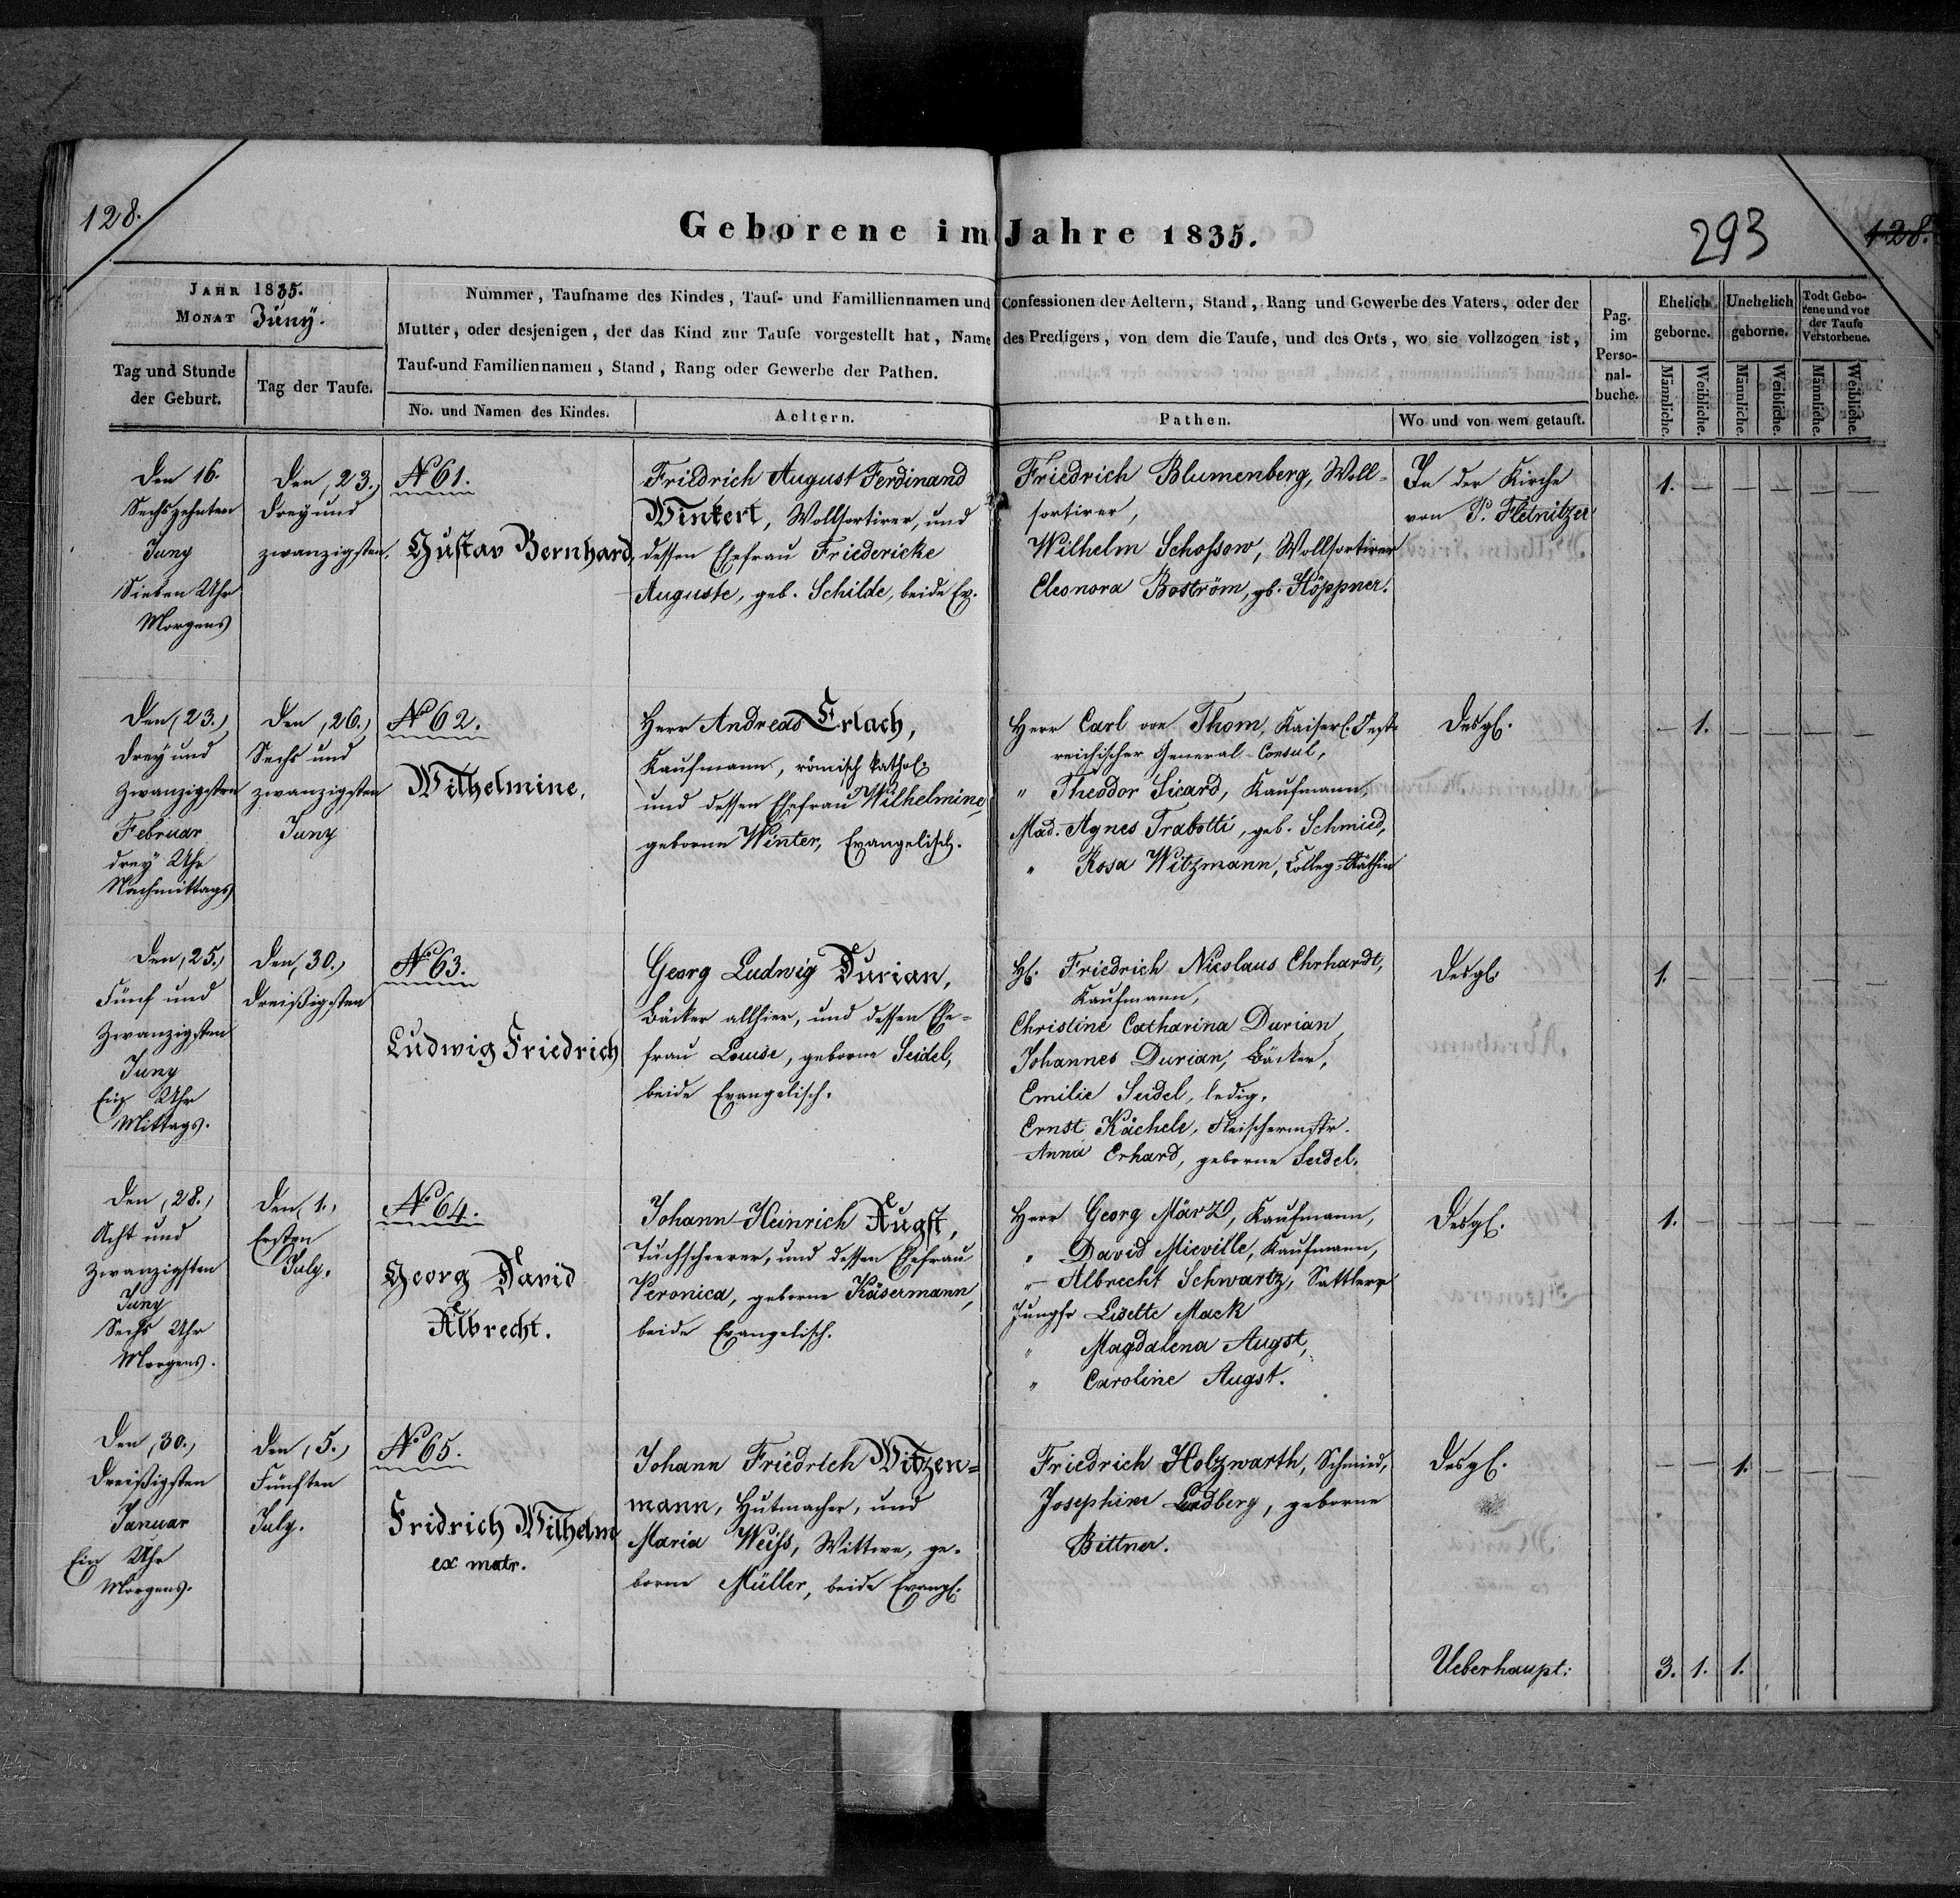 128.
Geborene im Jahre 1835.
293
128.
JAHR 1835.
MONAT Juny.
Tag und Stunde
der Geburt.
Tag der Taufe.
Nummer, Taufname des Kindes, Tauf- und Familliennamen und Confessionen der Aeltern, Stand, Rang und Gewerbe des Vaters, oder der
Mutter, oder desjenigen, der das Kind zur Taufe vorgestellt hat, Name des Predigers, von dem die Taufe, und des Orts, wo sie vollzogen ist,
Tauf-und Familiennamen, Stand, Rang oder Gewerbe der Pathen.
No. und Namen des Kindes.
Aeltern.
Pathen.
Wo und von wem getauft.
Pag.
im
Perso-
nal-
buche.
Ehelich
geborne.
Unehelich
geborne.
Todt Gebo-
rene und vor
der Taufe
Verstorbene.
Männliche.
Weibliche.
Männliche.
Weibliche.
Männliche.
Weibliche.
Den 16.
Sechszehnten
Juny
Sieben Uhr
Morgens
Den 23.
Drey und
zwanzigsten.
No 61.
Gustav Bernhard,
Friedrich August Ferdinand
Winkert, Wollsortirer, und
dessen Ehefrau Friedericke
Auguste, geb. Schilde, beide Ev.
Friedrich Blumenberg, Woll-
sortirer,
Wilhelm Schossow, Wollsortirer
Eleonora Boström, gb. Höppner.
In der Kirche
von P. Fletnitzer
1. — — — — —
Den (23.)
Drey und
zwanzigsten
Februar
drey Uhr
Nachmittags
Den (26.)
Sechs und
zwanzigsten
Juny
No 62.
Wilhelmine.
Herr Andreas Erlach,
Kaufmann, römisch kathol.
und dessen Ehefrau Wilhelmine,
geborne Winter, Evangelisch.
Herr Carl von Thom, Kaiserl. Oest-
reichischer General-Consul,
" Theodor Sicard, Kaufmann,
Mad. Agnes Trabotti, geb. Schmied,
" Rosa Witzmann, Colleg-Räthin
Desgl.
— 1. — — — —
Den (25.)
Fünf und
zwanzigsten
Juny
Ein Uhr
Mittags.
Den (30.)
Dreißigsten
No 63.
Ludwig Friedrich
Georg Ludwig Durian,
Bäcker allhier, und dessen Ehe-
frau Louise, geborne Seidel,
beide Evangelisch.
Friedrich Nicolaus Ehrhardt,
Kaufmann,
Christine Catharina Durian,
Johannes Durian, Bäcker,
Emilie Seidel, ledig,
Ernst Kächele, Fleischermstr.
Anna Erhard, geborne Seidel.
Desgl.
1. — — — — —
Den (28.)
Acht und
zwanzigsten
Juny
Sechs Uhr
Morgens.
Den (1.)
Ersten
July.
No 64.
Georg David
Albrecht.
Johann Heinrich Augst,
Tuchscheerer, und dessen Ehefrau
Veronica, geborne Käsermann,
beide Evangelisch.
Herr Georg März, Kaufmann,
" David Mieville, Kaufmann,
" Albrecht Schwartz, Sattler
Jungfr Lisette Mack
" Magdalena Augst,
" Caroline Augst.
Desgl.
1. — — — — —
Den (30.)
Dreißigsten
Januar
Ein Uhr
Morgens.
Den (5.)
Fünften
July.
No 65.
Fridrich Wilhelm
ex matr.
Johann Friedrich Witzen-
mann, Hutmacher, und
Maria Weiß, Wittwe, ge-
borne Müller, beide Evangl.
Friedrich Holzwarth, Schmied,
Josephine Lindberg, geborne
Bittner.
Desgl.
— — 1. — — —
Ueberhaupt: 3. 1. 1.